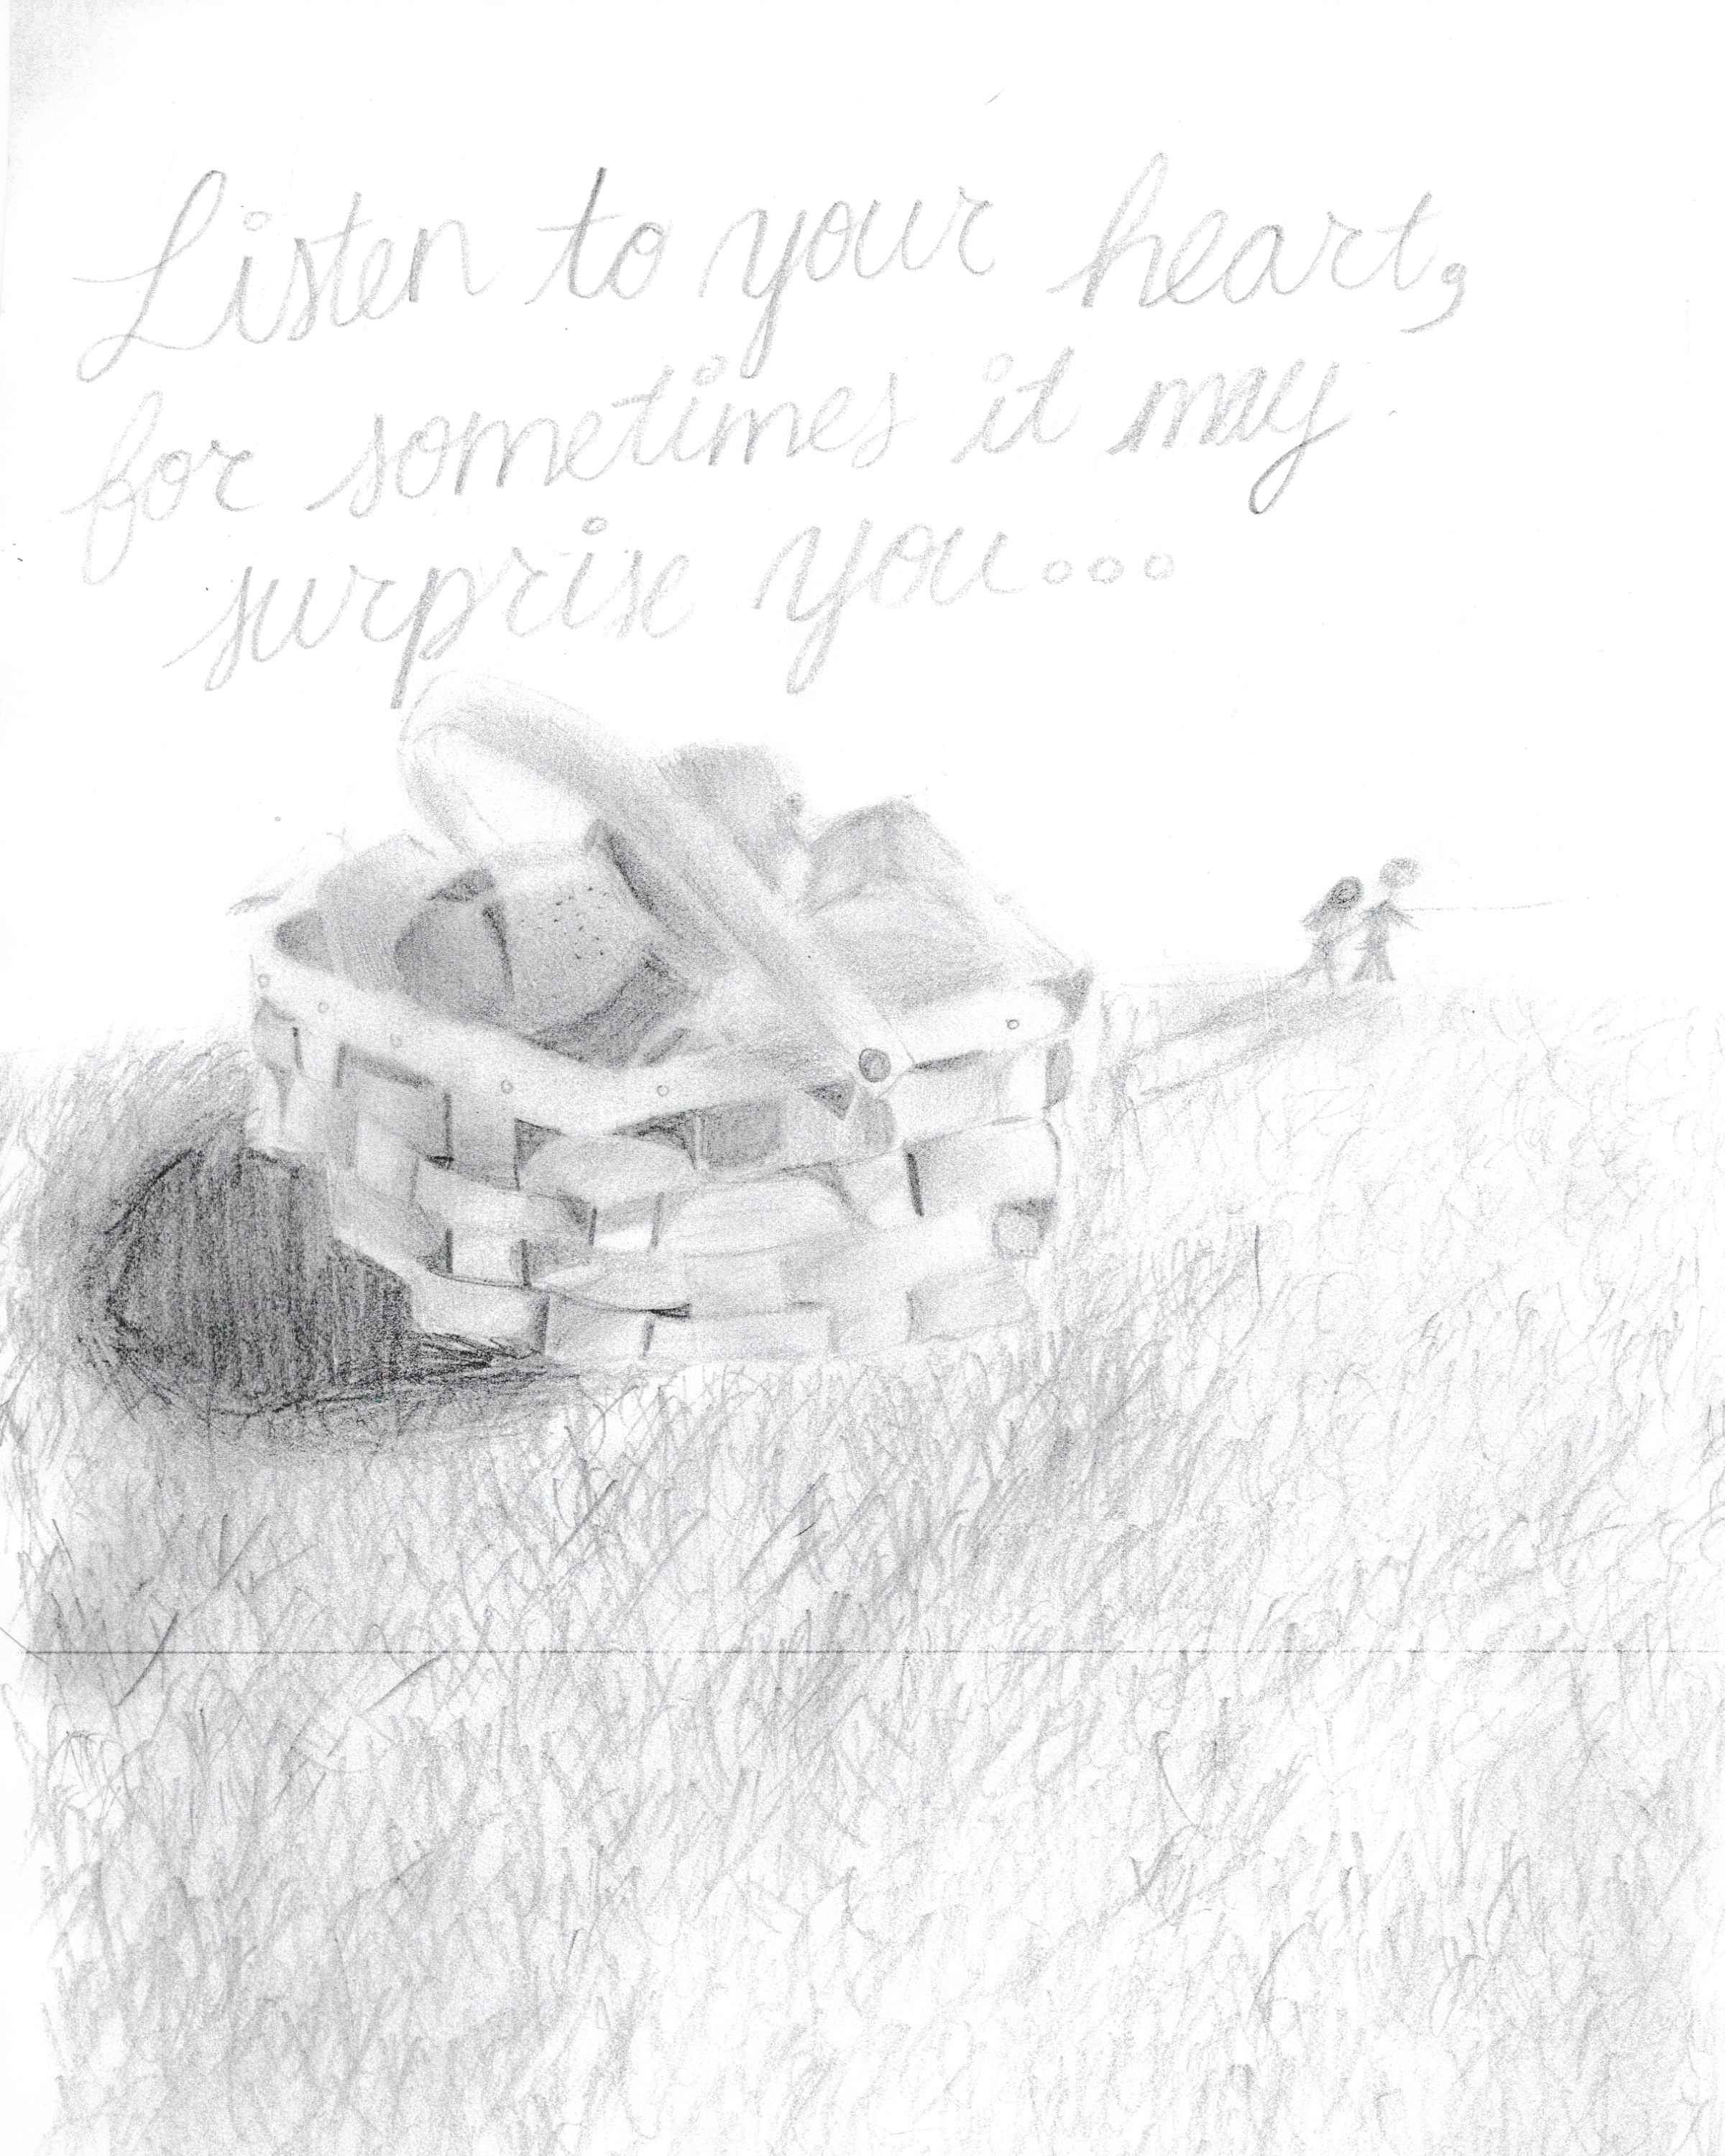 Listen to your heart,
for sometimes it may
surprise you...